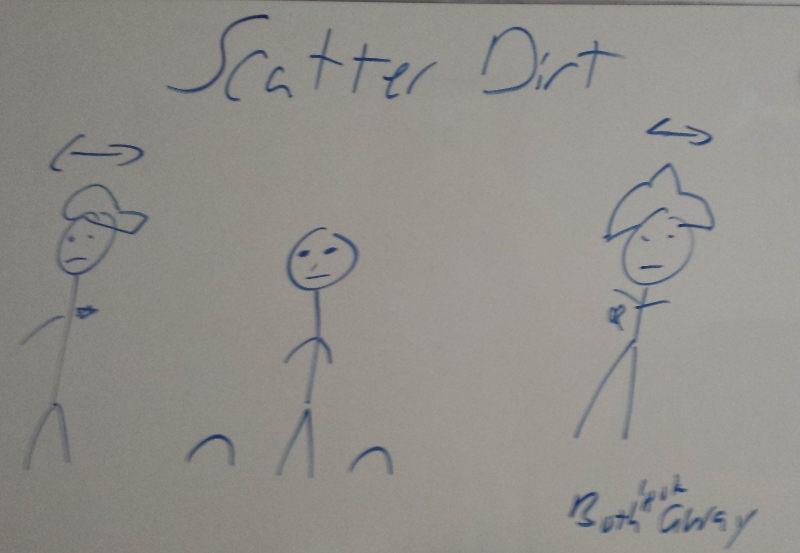 Scatter Dirt
Both look away